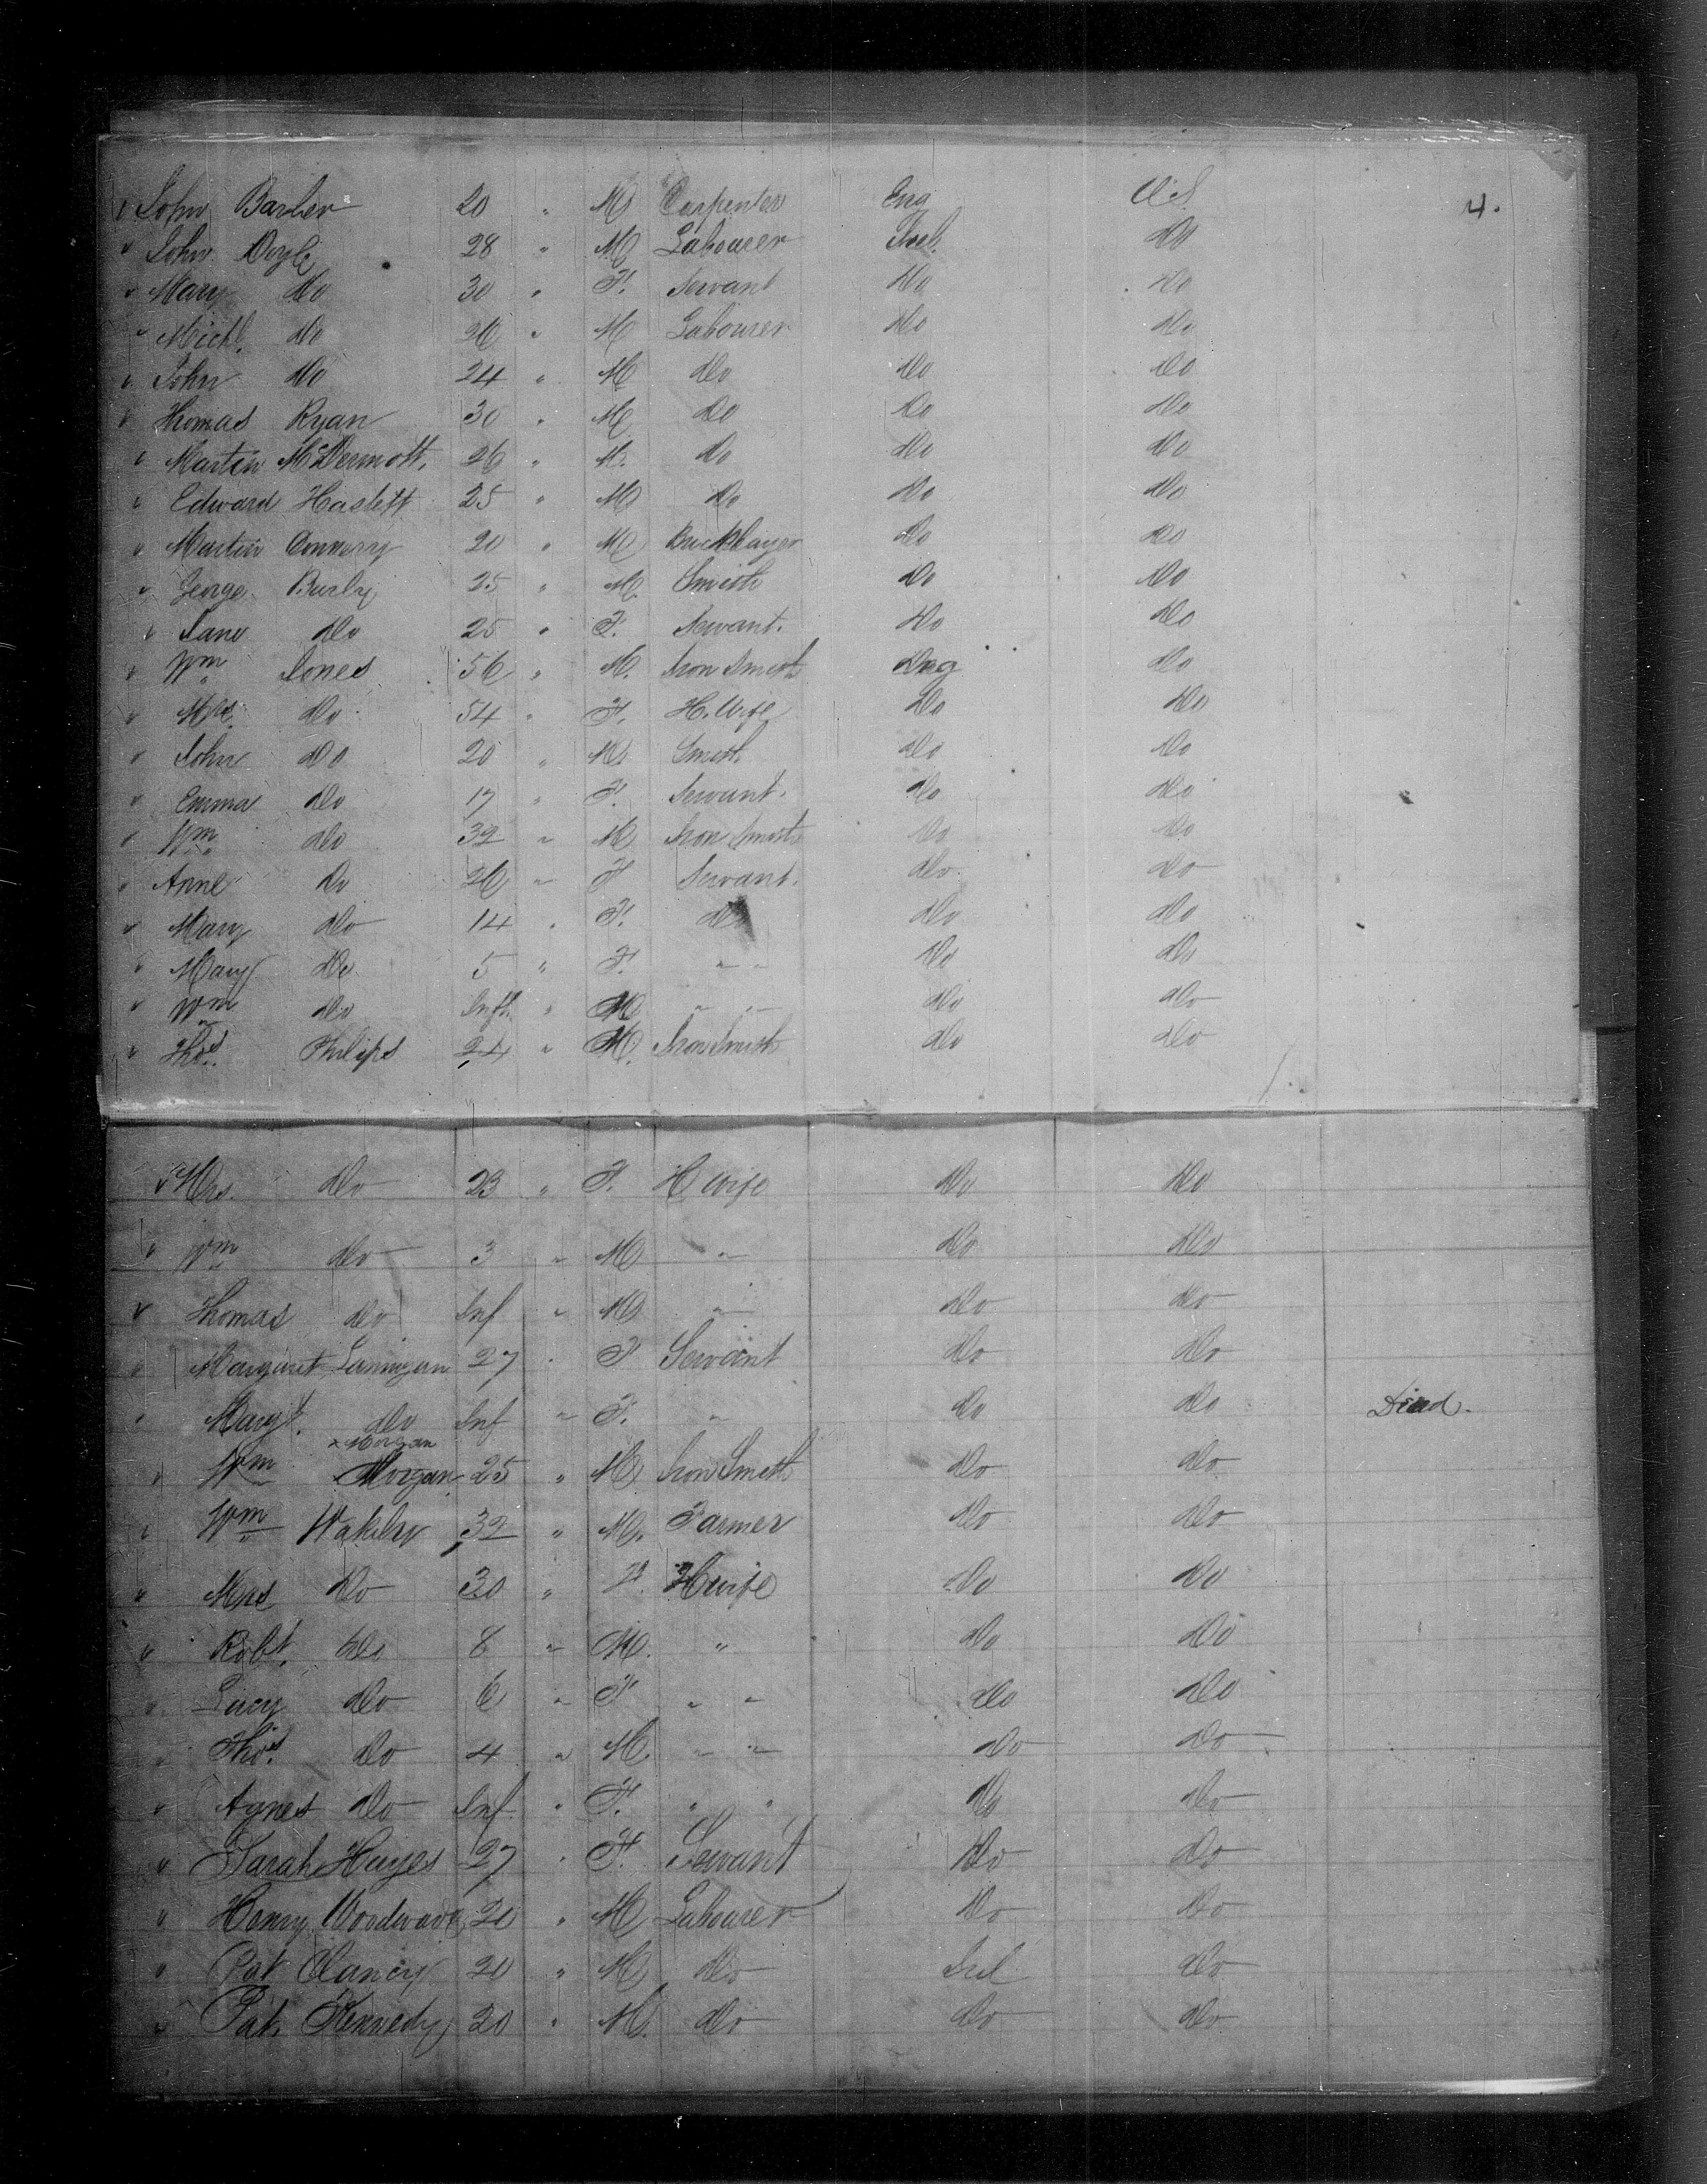 John Barber 20 " M Carpenter Eng U.S 4.
" John Doyle 28 " M Labourer Irel. Do
" Mary Do 30 " F. Servant Do Do
" Michl. Do 26 " M Labourer Do Do
" John Do 24 " M Do Do Do
" Thomas Ryan 30 " M Do Do Do
" Martin McDermott. 26 " M. Do Do Do
" Edward Haslett 25 " M Do Do Do
" Martin 20 " M Bricklayer Do Do
" George 25 " M Smith Do Do
" Jane Do 25 " F. Servant. Do Do
" Wm Jones 56 " M. Iron Smith Eng Do
" Mrs. Do 54 " F. H. Wife Do Do
" John Do 20 " M. Smith Do Do
" Emma Do 17 " F. Servant. Do Do
" Wm Do 32 " M Iron Smith Do Do
" Anne Do 26 " F Servant. Do Do
" Mary Do 14 " F. Do Do Do
" Mary Do 5 " F. " " Do Do
" Wm Do Inft. " M " " Do Do
" Thos. Philips 24 " M. Iron Smith Do Do
" Mrs. Do 23 " F. H Wife Do Do
" Wm Do 3 " M " Do Do
" Thomas Do Inf " M " Do Do
" Margaret Lannigan 27 " F Servant Do Do
" Margt. Do Inf " F. " Do Do Died.
x Morgan
" Wm Morgan 25 " M. Iron Smith Do Do
" Wm 32 " M. Farmer Do Do
" Mrs Do 30 " F. H wife Do Do
" Robt. Do 8 " M. " Do Do
" Lucy Do 6 " F " " Do Do
" Thos. Do 4 " M. " " Do Do
" Agnes Do Inf. " F. " " Do Do
" Sarah Hayes 27 " F. Servant Do Do
" Henry Woodward 20 " M Labourer Do Do
" Pat Clancy 20 " M Do Irel Do
" Pat. Kennedy 20 " M. Do Do Do